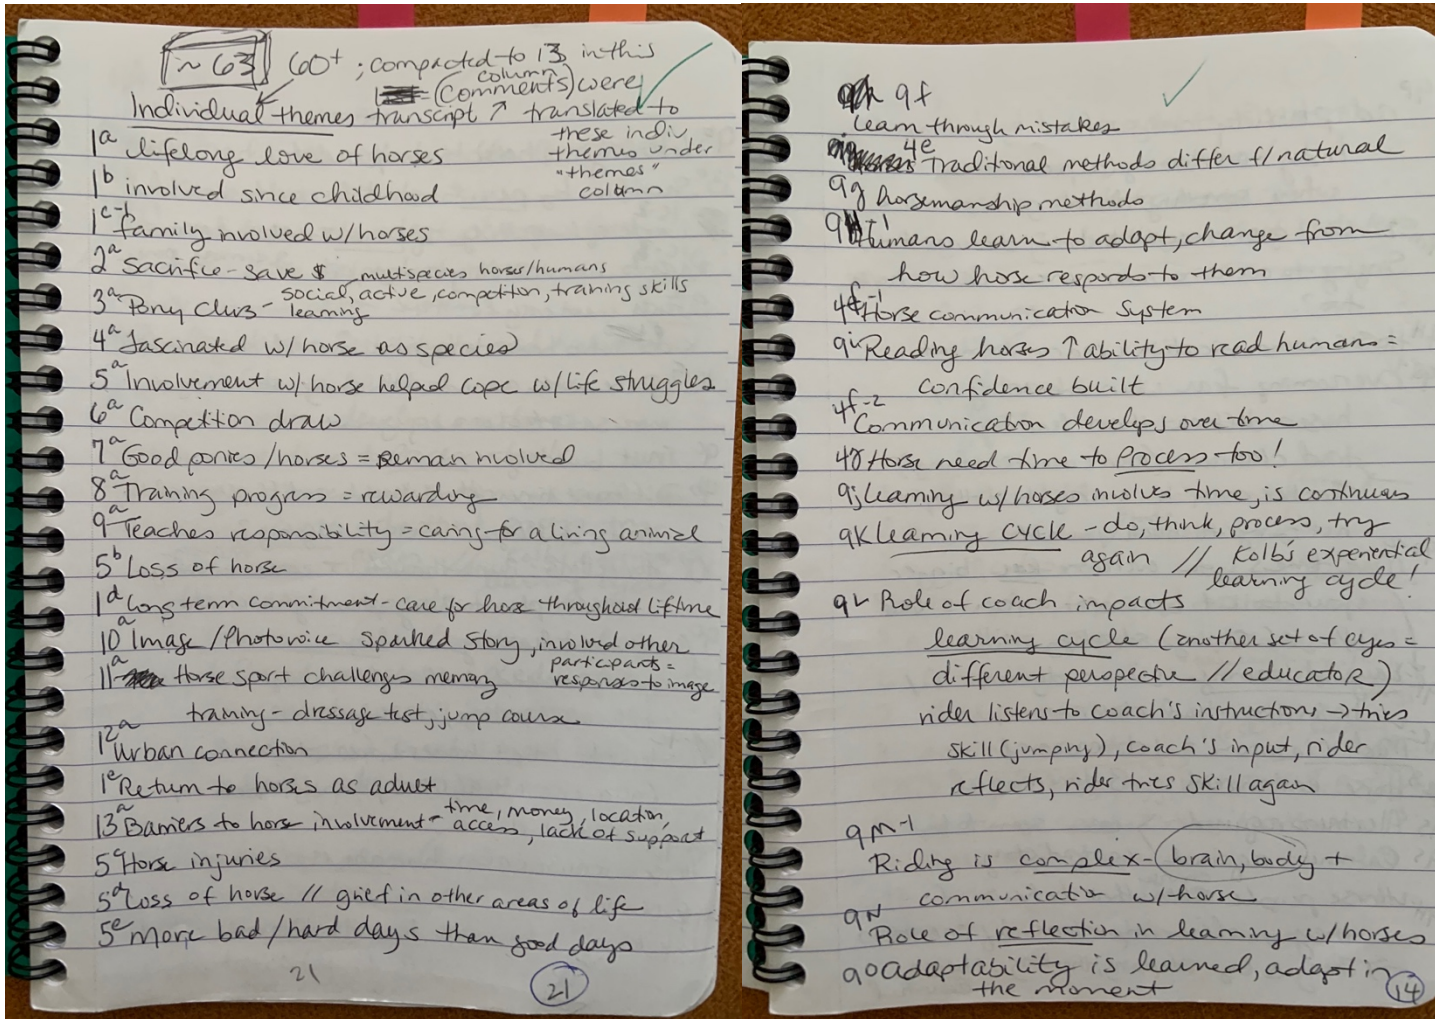 ~ 63 60+ ; compacted to 13 in this
column
= (comments) were
Individual themes transcript ↗ translated to
these indiv,
themes under
"themes"
column
1a lifelong love of horses
1b involved since childhood
1c-1 family involved w/horses
2a Sacrifice - save $ multispecies horses/humans
3a Pony Clubs - social, active, competition, training skills
learning
4a fascinated w/horse as species
5a Involvement w/horse helped cope w/life struggles
6a Competition draw
7a Good ponies/horses = remain involved
8a Training progress = rewarding
9a Teaches responsibility = caring for a living animal
5b Loss of horse
1d Long term commitment - care for horse throughout lifetime
10a Image/Photovoice sparked story, involved other
participants =
responses to image
11a Horse sport challenges memory
training - dressage test, jump course
12a Urban connection
1e Return to horses as adult
13a Barriers to horse involvement - time, money, location,
access, lack of support
5c Horse injuries
5d Loss of horse // grief in other areas of life
5e more bad/hard days than good days
21
21
9f
learn through mistakes
4e Traditional methods differ f/natural
9g horsemanship methods
9h-1 Humans learn to adapt, change from
how horse responds to them
4f-1 Horse communication system
9i Reading horses ↑ ability to read humans =
confidence built
4f-2
Communication develops over time
4g Horse need time to process too!
9j learning w/horses involves time, is continuous
9K learning cycle - do, think, process, try
again // Kolb's experiential
learning cycle!
9L Role of coach impacts
learning cycle (another set of eyes =
different perspective // educator)
rider listens to coach's instructions → tries
skill (jumping), coach's input, rider
reflects, rider tries skill again
9M-1
Riding is complex - brain, body +
communication w/horse
9N
Role of reflection in learning w/horses
9o adaptability is learned, adapt in
the moment
14